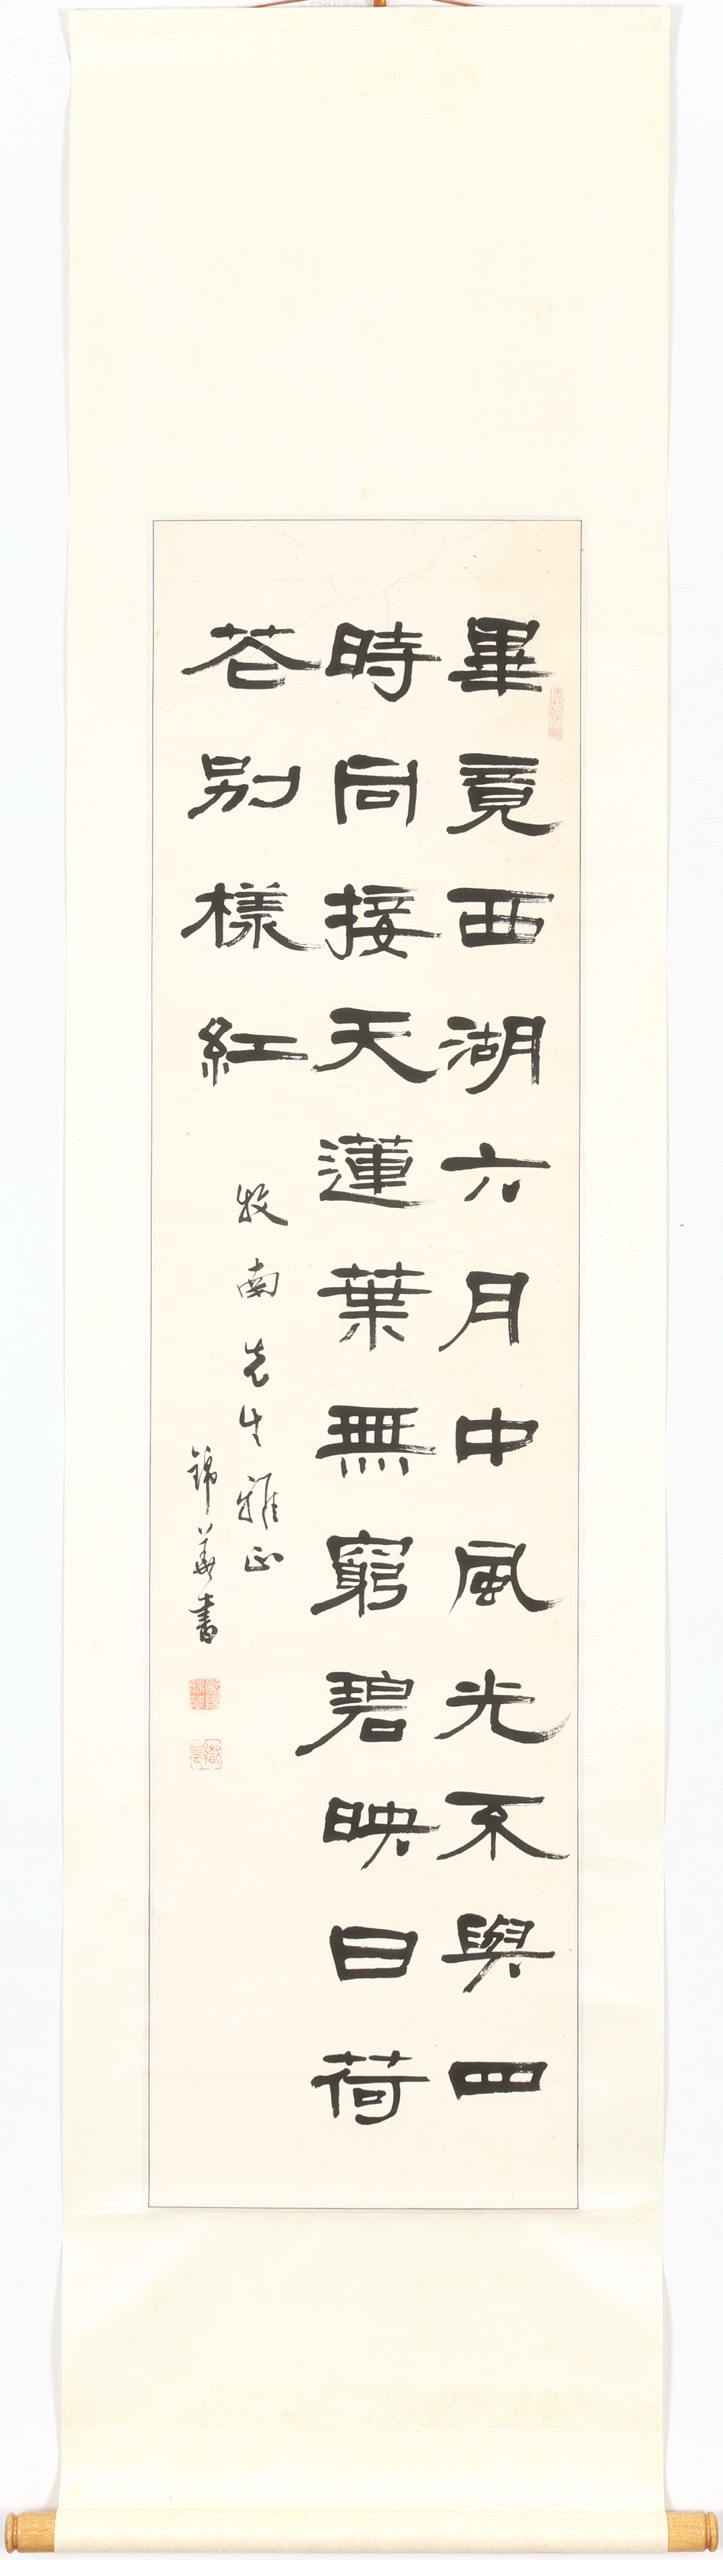 畢竟西湖六月中風光不與四
時同接天蓮葉無窮碧映日荷
花別樣紅
牧南先生雅正
錦華書